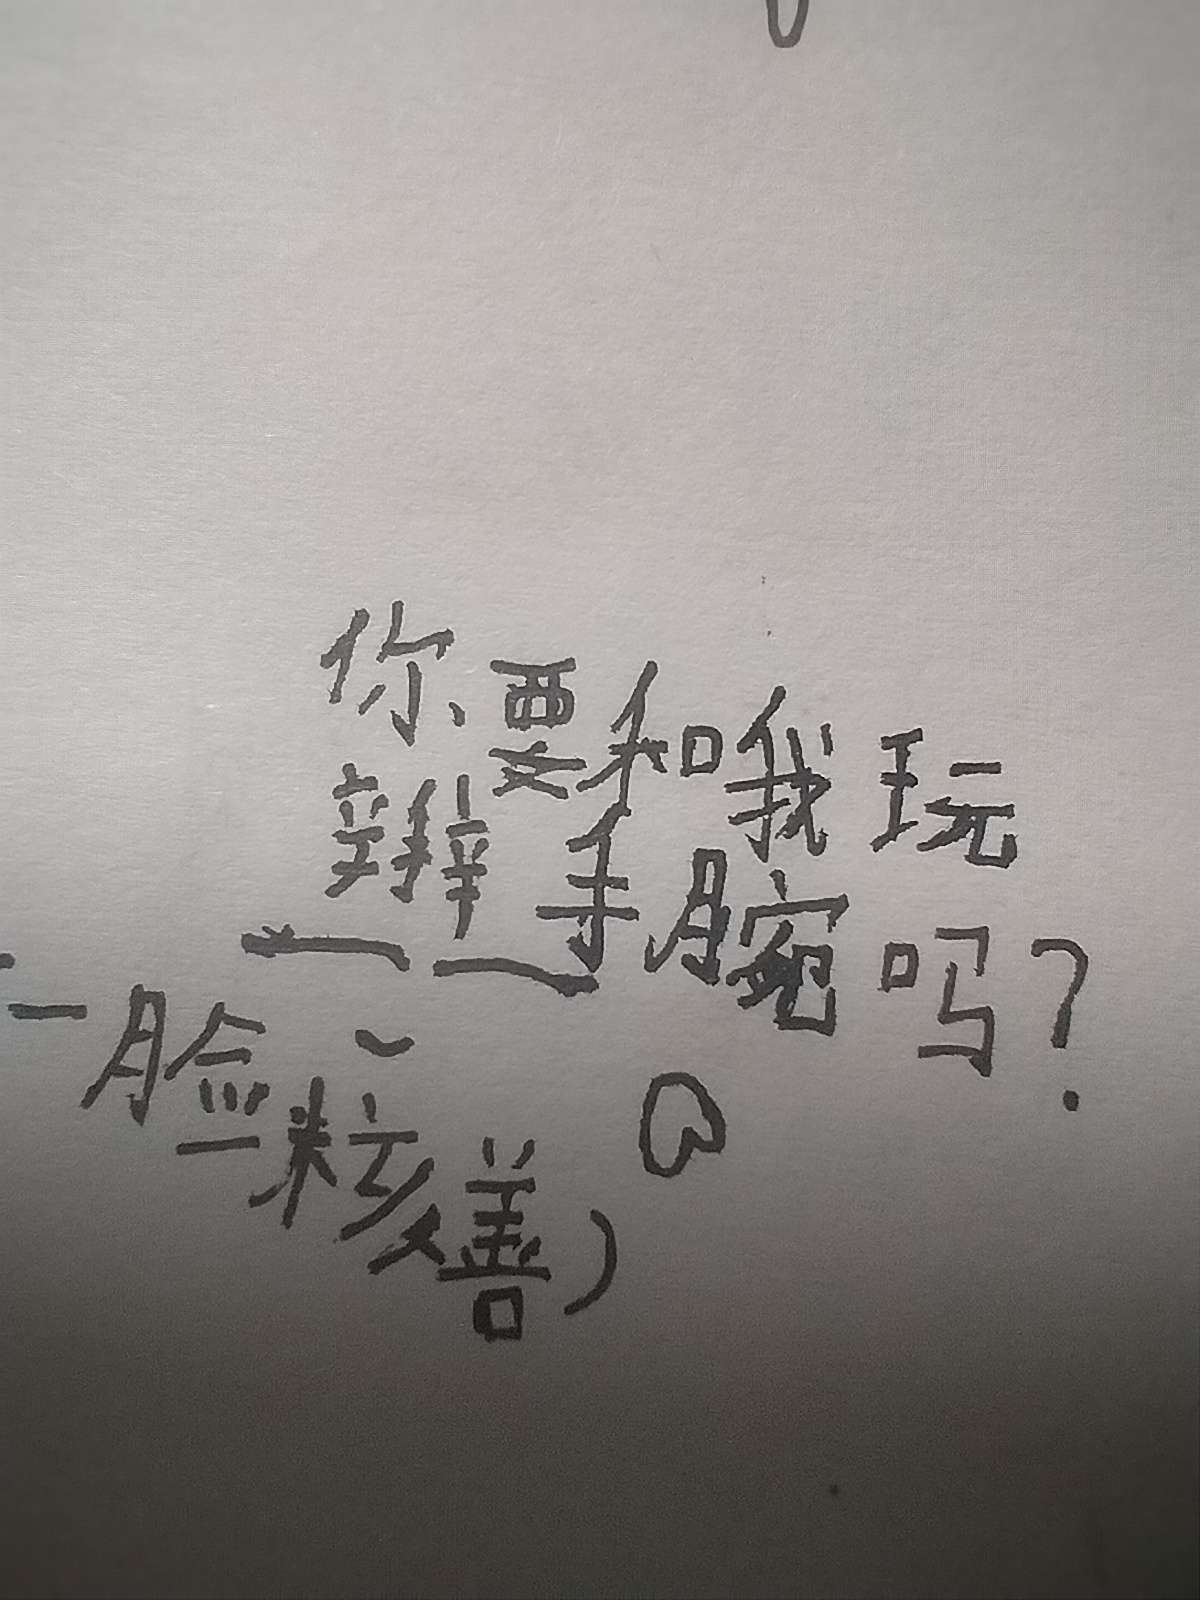 你要和我玩
手腕吗?
一脸核善)